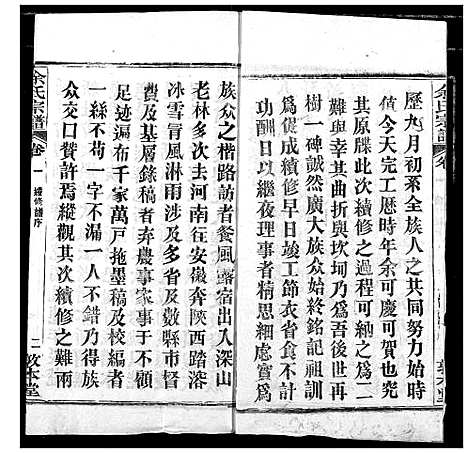 歷九月初系全族人之共同努力始時
值今天完工歷時年余可慶可賀當究
其原牒此次續修之過程可納之爲二
難與幸其曲折與坎坷乃爲吾後世再
樹一碑誠然廣大族众始終銘記祖訓
爲促成續修早日竣工節衣省食不計
功酬日以繼夜理事者精思細慮實爲
族众之楷路訪者餐風露宿出入深山
老林多次去河南往安徽奔陝西踏落
冰雪冒風淋雨涉及多省及數縣市督
費及基層錄稿者弃農事家事于不顧
足迹遍布千家萬戸拖墨稿及校編者
一絲不苟一字不漏一人不錯乃得族
众交口贊許焉縱觀其次續修之難兩
余氏宗譜
卷一
續修譜序
二
敦本堂
余氏宗譜
卷
敦本堂